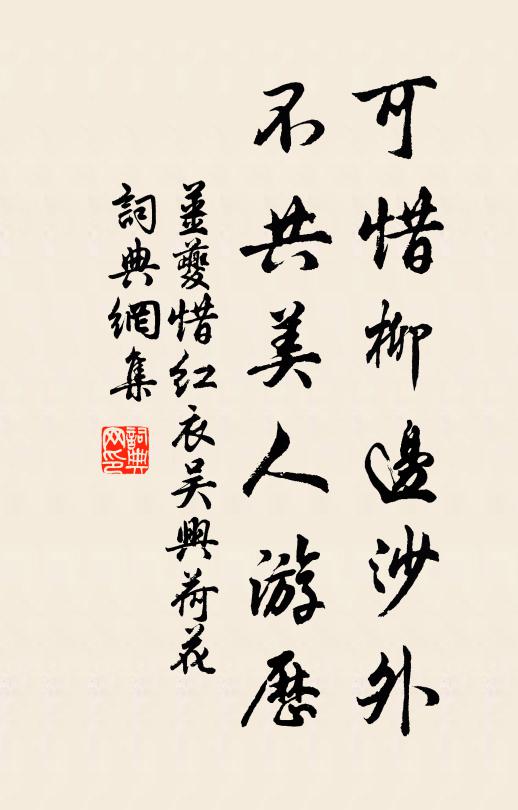 可惜柳邊沙外
不共美人游歷
姜夔惜紅衣吳興荷花
詞典網集
詞典
网印